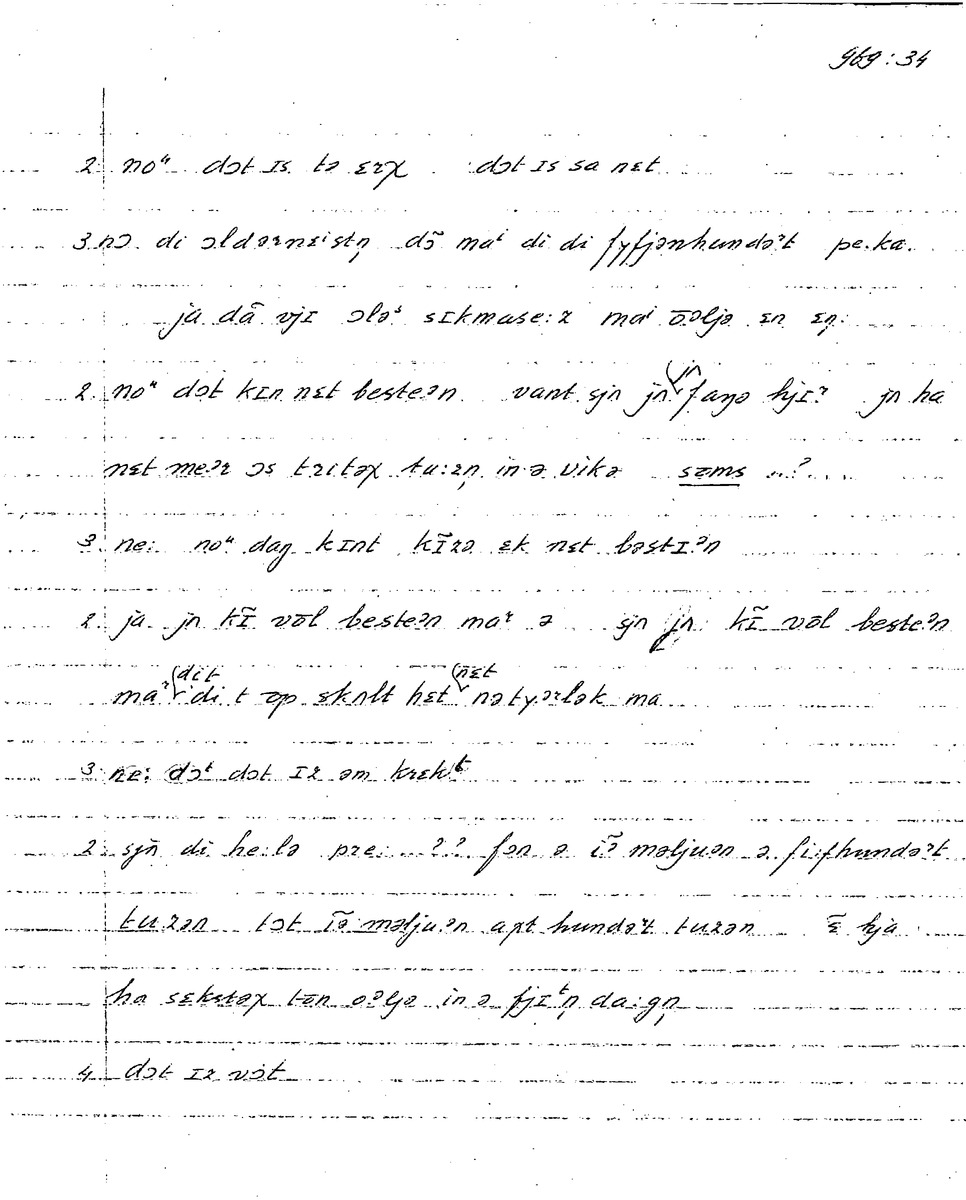 969:34
2. noᵘ dɔt ɪs tə ɛrχ dɔt ɪs sa nɛt
3. nɔ. di ɔldərnɛistn̩ dɔ̃ maⁱ di di fyfjənhundəʳt pe.ka.
ja dã vjɪ ɔləᵗ sɪkmase:z maⁱ õəljə ɛn ɛn̩.
2. noᵘ dɔt kɪn nɛt besteᵊn vant sjn jn jn faŋə hjɪʳ jn ha
nɛt meᵊr ɔs tritəχ tu:zn̩ in ə vikə səms ..?
3. ne: noᵘ daŋ kɪnt kĩzə ɛk nɛt bəstɪᵊn
2. ja jn kɪ̃ vɔ̄l besteᵊn maʳ ə sjn jn kɪ̃ vɔ̄l besteᵊn
maʳ dit di t əp skʌlt hɛt nɛt nətyərlək ma
3. ne: dɔᵗ dɔt ɪz əm krɛkt
2. sjn di he:lə pre: ?? fən ə ĩᵊ məljuən ə fi:fhundəʳt
tuzən tɔt ĩə məlju:ən aχt hundəʳt tuzən ɛ̃ hja
ha sɛkstəχ tən oəljə in ə fjɪᵗn̩ da:gn̩
4. dɔt ɪz vɔt